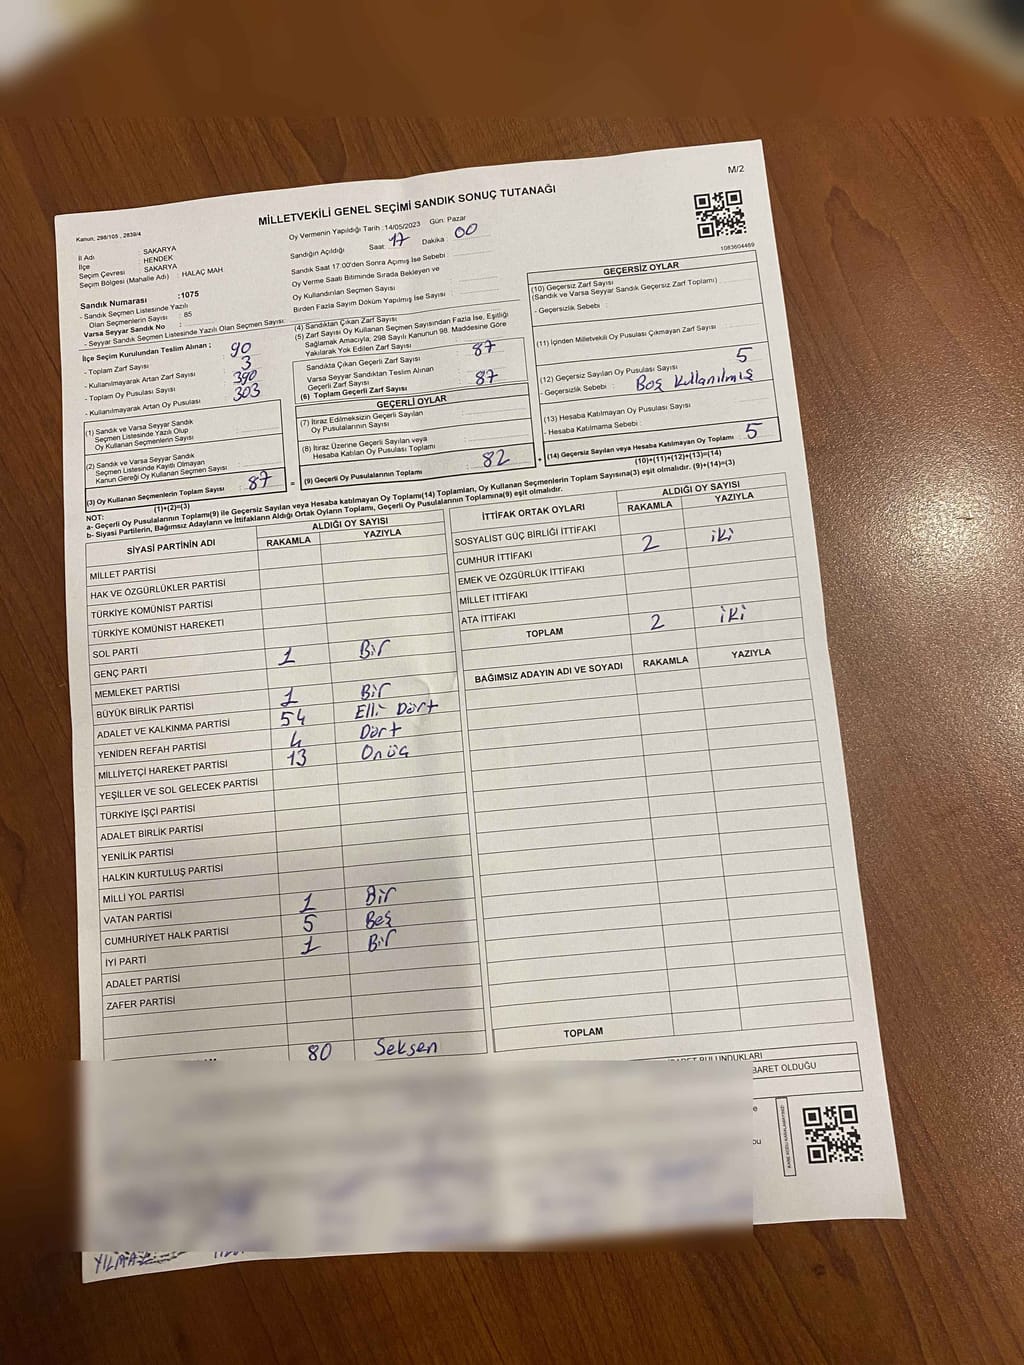 M/2
MİLLETVEKİLİ GENEL SEÇİMİ SANDIK SONUÇ TUTANAĞI
Kanun, 298/105 , 2839/4
İl Adı : SAKARYA
İlçe : HENDEK
Seçim Çevresi : SAKARYA
Seçim Bölgesi (Mahalle Adı) : HALAÇ MAH
Sandık Numarası :1075
- Sandık Seçmen Listesinde Yazılı
Olan Seçmenlerin Sayısı : 85
Varsa Seyyar Sandık No :
- Seyyar Sandık Seçmen Listesinde Yazılı Olan Seçmen Sayısı:
Oy Vermenin Yapıldığı Tarih :14/05/2023 Gün: Pazar
Sandığın Açıldığı Saat: 17 Dakika : 00
Sandık Saat 17:00'den Sonra Açılmış İse Sebebi :
Oy Verme Saati Bitiminde Sırada Bekleyen ve
Oy Kullandırılan Seçmen Sayısı :
Birden Fazla Sayım Döküm Yapılmış İse Sayısı :
1083604469
İlçe Seçim Kurulundan Teslim Alınan ;
- Toplam Zarf Sayısı : 90
- Kullanılmayarak Artan Zarf Sayısı : 3
- Toplam Oy Pusulası Sayısı : 390
- Kullanılmayarak Artan Oy Pusulası : 303
(1) Sandık ve Varsa Seyyar Sandık
Seçmen Listesinde Yazılı Olup
Oy Kullanan Seçmenlerin Sayısı
(2) Sandık ve Varsa Seyyar Sandık
Seçmen Listesinde Kayıtlı Olmayan
Kanun Gereği Oy Kullanan Seçmen Sayısı
(3) Oy Kullanan Seçmenlerin Toplam Sayısı 87
(1)+(2)=(3)
(4) Sandıktan Çıkan Zarf Sayısı
(5) Zarf Sayısı Oy Kullanan Seçmen Sayısından Fazla İse, Eşitliği
Sağlamak Amacıyla; 298 Sayılı Kanunun 98. Maddesine Göre
Yakılarak Yok Edilen Zarf Sayısı
Sandıkta Çıkan Geçerli Zarf Sayısı : 87
Varsa Seyyar Sandıktan Teslim Alınan
Geçerli Zarf Sayısı
(6) Toplam Geçerli Zarf Sayısı : 87
GEÇERLİ OYLAR
(7) İtiraz Edilmeksizin Geçerli Sayılan
Oy Pusulalarının Sayısı
(8) İtiraz Üzerine Geçerli Sayılan veya
Hesaba Katılan Oy Pusulalarının Sayısı
= (9) Geçerli Oy Pusulalarının Toplamı 82 +
GEÇERSİZ OYLAR
(10) Geçersiz Zarf Sayısı
(Sandık ve Varsa Seyyar Sandık Geçersiz Zarf Toplamı)
- Geçersizlik Sebebi :
(11) İçinden Milletvekili Oy Pusulası Çıkmayan Zarf Sayısı
(12) Geçersiz Sayılan Oy Pusulası Sayısı 5
- Geçersizlik Sebebi : Boş Kullanılmış
(13) Hesaba Katılmayan Oy Pusulası Sayısı
- Hesaba Katılmama Sebebi :
(14) Geçersiz Sayılan veya Hesaba Katılmayan Oy Toplamı 5
(10)+(11)+(12)+(13)=(14)
NOT:
a- Geçerli Oy Pusulalarının Toplamı(9) ile Geçersiz Sayılan veya Hesaba katılmayan Oy Toplamı(14) Toplamları, Oy Kullanan Seçmenlerin Toplam Sayısına(3) eşit olmalıdır. (9)+(14)=(3)
b- Siyasi Partilerin, Bağımsız Adayların ve İttifakların Aldığı Ortak Oyların Toplamı, Geçerli Oy Pusulalarının Toplamına(9) eşit olmalıdır.
SİYASİ PARTİNİN ADI ALDIĞI OY SAYISI
RAKAMLA YAZIYLA
MİLLET PARTİSİ
HAK VE ÖZGÜRLÜKLER PARTİSİ
TÜRKİYE KOMÜNİST PARTİSİ
TÜRKİYE KOMÜNİST HAREKETİ
SOL PARTİ
GENÇ PARTİ 1 Bir
MEMLEKET PARTİSİ
BÜYÜK BİRLİK PARTİSİ 1 Bir
ADALET VE KALKINMA PARTİSİ 54 Elli Dört
YENİDEN REFAH PARTİSİ 4 Dört
MİLLİYETÇİ HAREKET PARTİSİ 13 Onüç
YEŞİLLER VE SOL GELECEK PARTİSİ
TÜRKİYE İŞÇİ PARTİSİ
ADALET BİRLİK PARTİSİ
YENİLİK PARTİSİ
HALKIN KURTULUŞ PARTİSİ
MİLLİ YOL PARTİSİ
VATAN PARTİSİ 1 Bir
CUMHURİYET HALK PARTİSİ 5 Beş
İYİ PARTİ 1 Bir
ADALET PARTİSİ
ZAFER PARTİSİ
80 Seksen
İTTİFAK ORTAK OYLARI ALDIĞI OY SAYISI
RAKAMLA YAZIYLA
SOSYALİST GÜÇ BİRLİĞİ İTTİFAKI
CUMHUR İTTİFAKI 2 iki
EMEK VE ÖZGÜRLÜK İTTİFAKI
MİLLET İTTİFAKI
ATA İTTİFAKI
TOPLAM 2 iki
BAĞIMSIZ ADAYIN ADI VE SOYADI RAKAMLA YAZIYLA
TOPLAM
BULUNDUKLARI
BARET OLDUĞU
YILMAZ